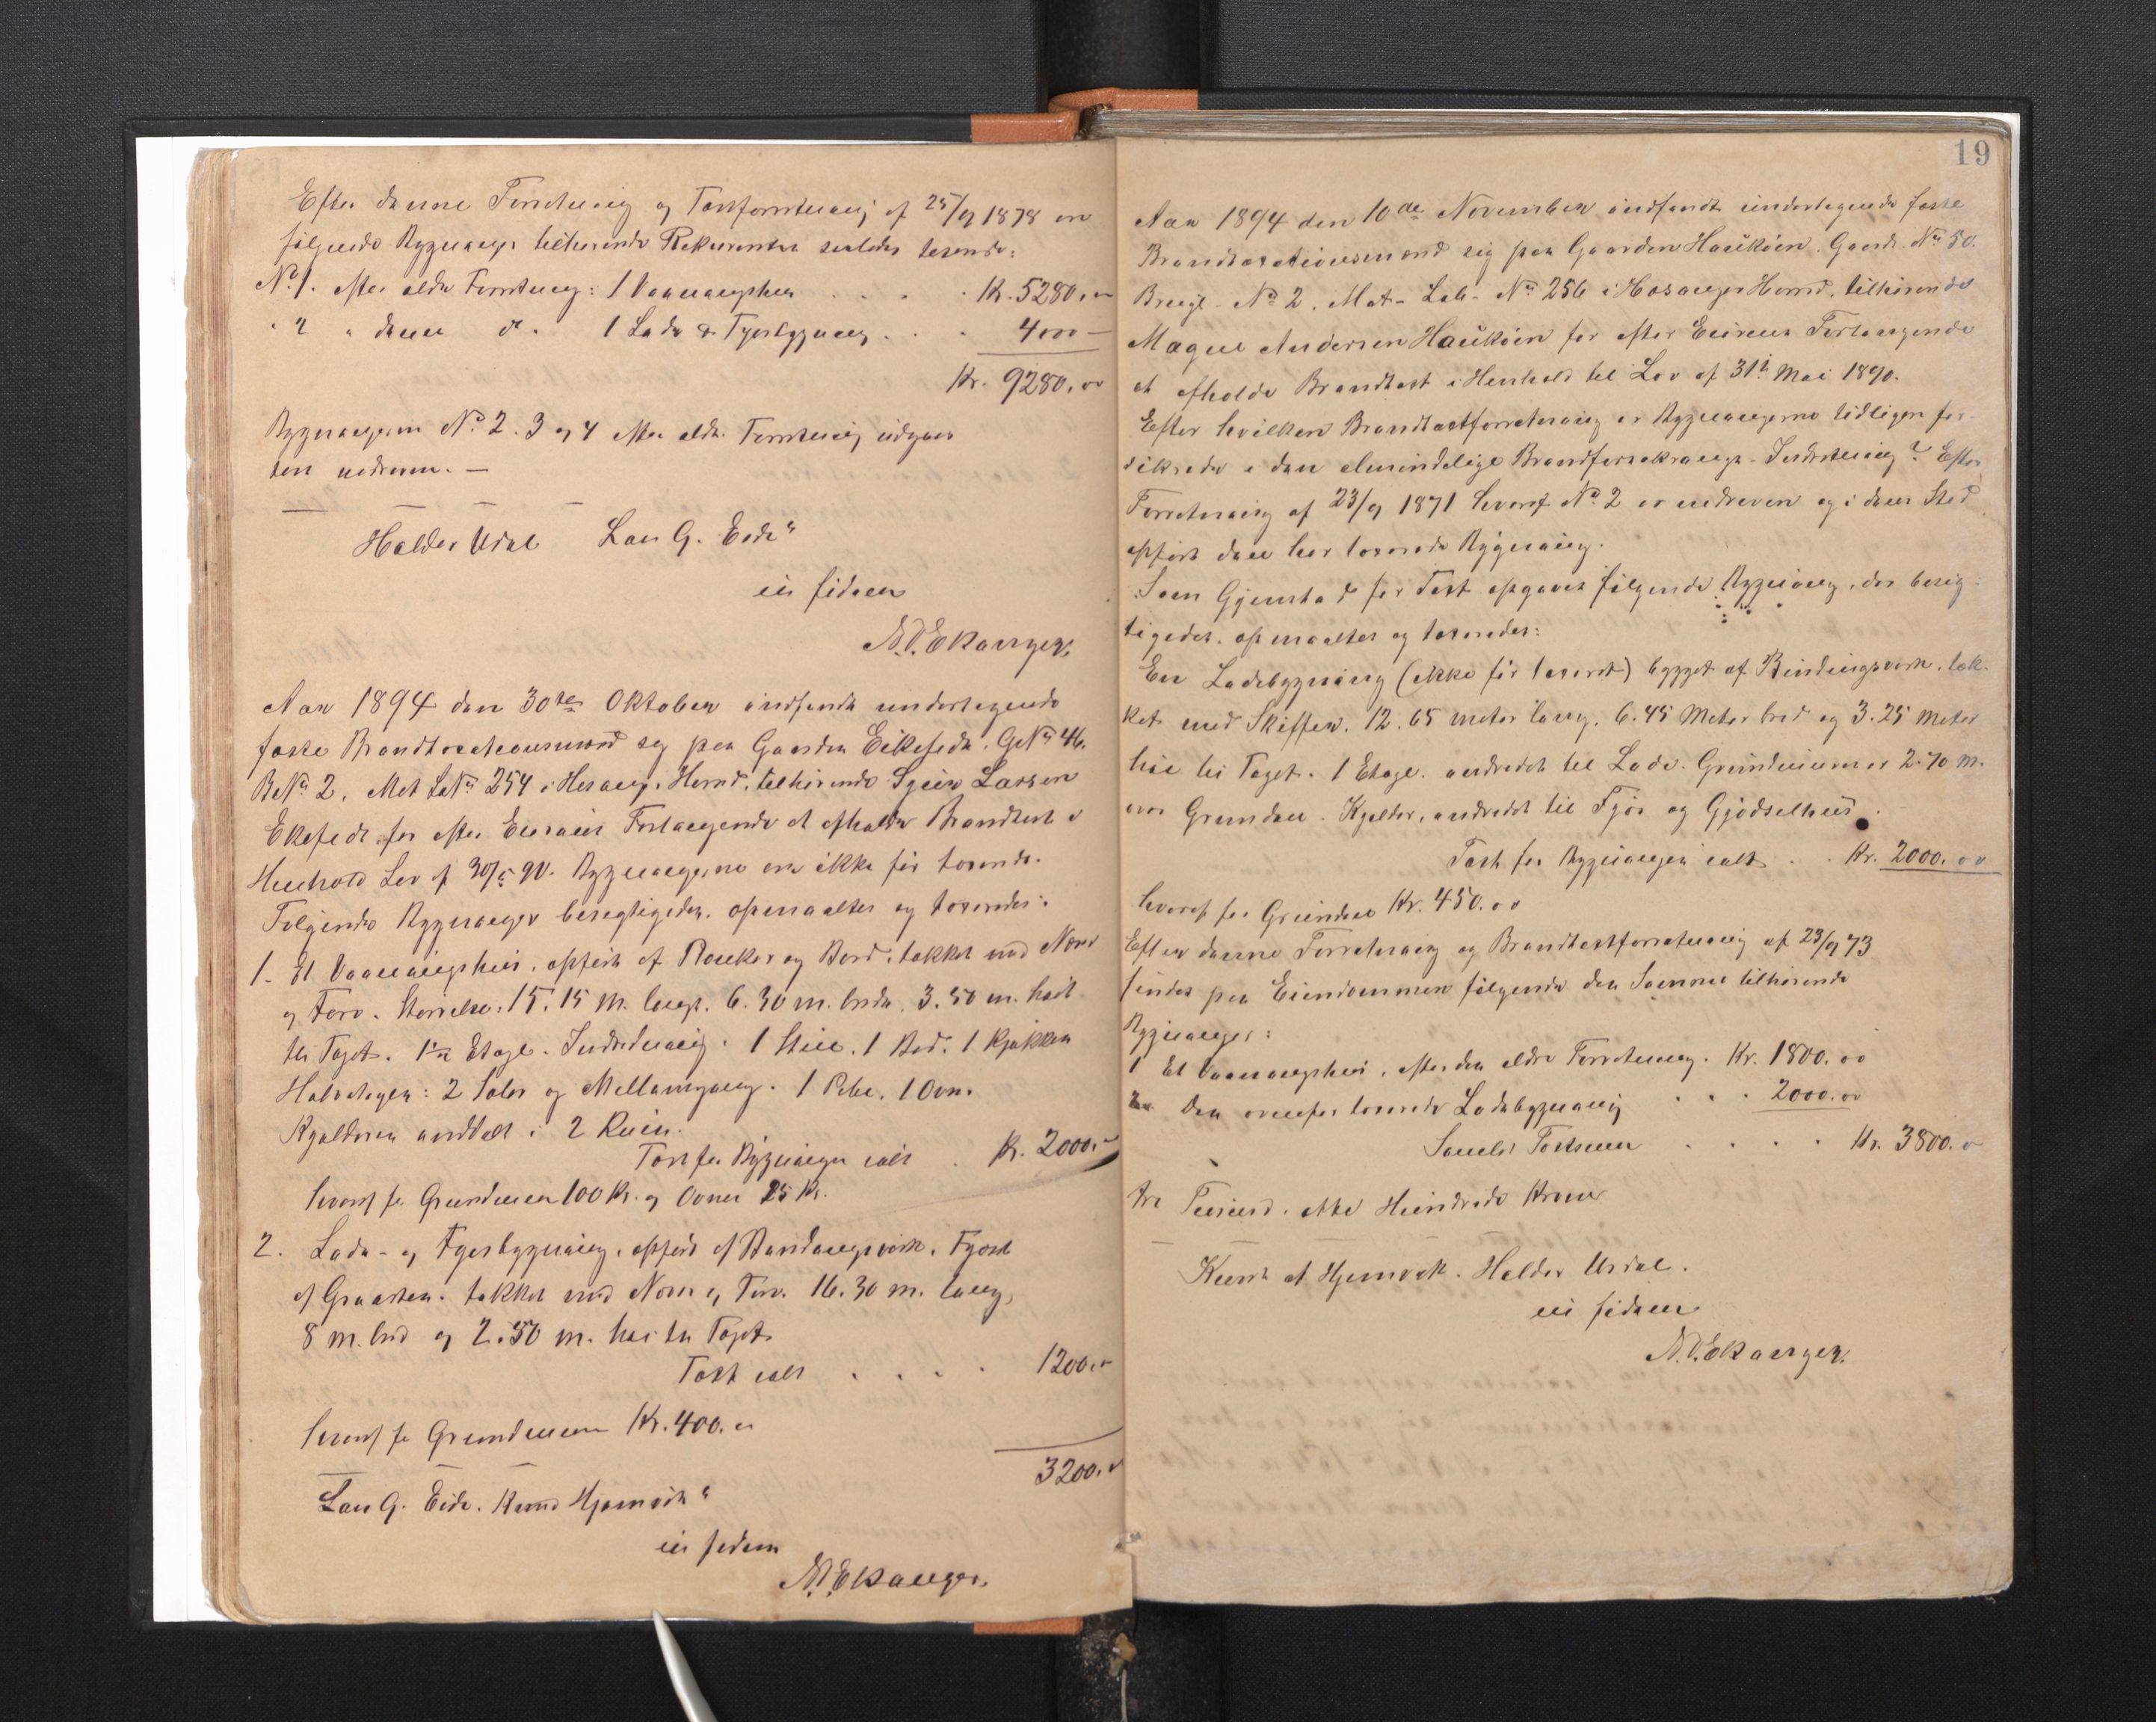 Efter denne Forretning og Taxtforretning af 25/9 1878 ere
følgende Bygninger tilhørende Rekvirenten saaledes taxerede:
No 1. efter ældre Forretning: 1 Vaaningshus . . . . Kr. 5280,00
" 2 " denne do. 1 Lade & Fjøsbygning . . . 4000 —
Kr. 9280,00
Bygningerne No. 2. 3 og 4 efter ældre Forretning udgaar
som nedrevne. —
Haldor Urdal Lars G. Eide"
in fidem
N. P. Ekanger.
Aar 1894 den 30te Oktober indfandt undertegnede
faste Brandtaxationsmænd sig paa Gaarden Eikefedt. GNo 46.
BNo 2. Mat LNo 254 i Hosanger Herred, tilhørende Sjur Larsen
Ekefedt for efter Eierens Forlangende at afholde Brandtaxt i
Henhold Lov af 30/5 90. Bygningerne ere ikke før taxerede.
Følgende Bygninger besigtigedes, opmaaltes og taxeredes:
1. Et Vaaningshus, opført af Planker og Bord, tækket med Næver
og Torv. Størrelse: 15.15 m. langt, 6.30 m. bredt, 3.50 m. høit
til Taget. 1ste Etage. Indredning: 1 Stue. 1 Bod. 1 Kjøkken
Halvetagen: 2 Saler og Mellemgang. 1 Pibe. 1 Ovn.
Kjælderen inddelt i 2 Rum.
Taxt for Bygningen ialt . Kr. 2000.—
hvoraf for Grundmuren 100 Kr. og Ovnen 25 Kr.
2. Lade- og Fjøsbygning, opført af Bindingsværk. Fjøset
af Graasten. tækket med Næver og Torv. 16.30 m. lang,
8 m. bred og 2.50 m. høi til Taget
Taxt ialt . . . . 1200.—
hvoraf for Grundmuren Kr. 400.00
3200.—
Lars G. Eide. Knud Hjemvik"
in fidem
N. P. Ekanger.
19
Aar 1894 den 10de November indfandt undertegnede faste
Brandtaxationsmænd sig paa Gaarden Haukøen. Gaards-No 50.
Brugs-No 2. Mat-Løb-No 256 i Hosanger Herred, tilhørende
Magne Andersen Haukøen for efter Eierens Forlangende
at afholde Brandtaxt i Henhold til Lov af 31te Mai 1890.
Efter hvilken Brandtaxtforretning er Bygningerne tidligere for-
sikrede i den almindelige Brandforsikrings-Indretning? Efter
Forretning af 23/9 1871 hvoraf No 2 er nedreven og i dens Sted
opført den her taxerede Bygning.
Som Gjenstand for Taxt opgaves følgende Bygning, der besig-
tigedes, opmaaltes og taxeredes:
En Ladebygning (ikke før taxeret) bygget af Bindingsværk, tæk-
ket med Skiffer. 12.65 meter lang, 6.45 Meter bred og 3.25 Meter
høi til Taget. 1 Etage. indredet til Lade. Grundmuren er 2.70 m.
over Grunden. Kjelder, indredet til Fjøs og Gjødselhus.
Taxt for Bygningen ialt . . Kr. 2000.00
hvoraf for Grunden Kr. 450.00
Efter denne Forretning og Brandtaxtforretning af 23/9 73
findes paa Eiendommen følgende den Samme tilhørende
Bygninger:
1 Et Vaaningshus, efter den ældre Forretning. Kr. 1800.00
2. Den ovenfor taxerede Ladebygning . . . 2000.00
Samlet Taxtsum . . . . Kr. 3800.00
tre Tusind, otte Hundrede Kroner
Knud A Hjemvik. Haldor Urdal.
in fidem
N. P. Ekanger.